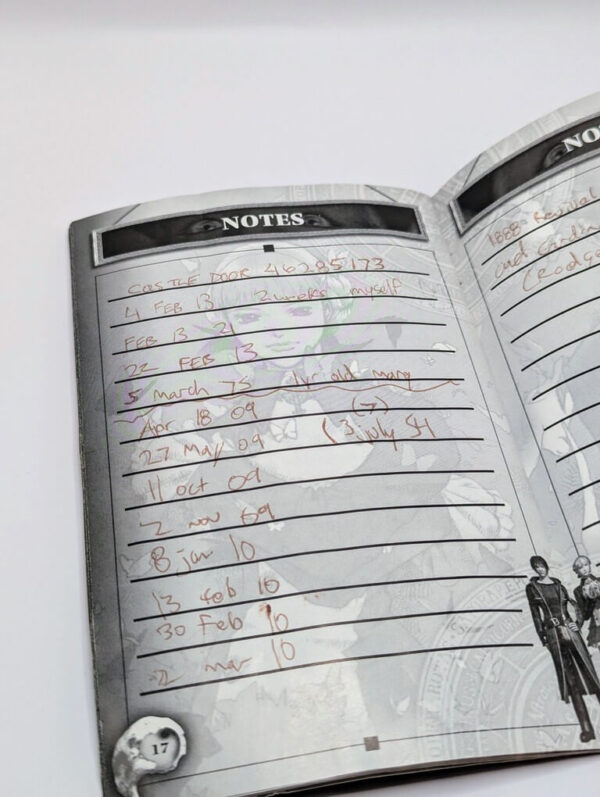 NOTES
CASTLE DOOR 46285173
4 FEB 13 2 weeks myself
FEB 13 21
22 FEB 13
5 march 75 1yr old marg
Apr 18 09 (7)
27 May 09 (3 july SH
11 oct 09
2 nov 09
8 jan 10
13 feb 10
30 Feb 10
2 mar 10
17
NO
1888 Revival
and Cardin
(Rodge